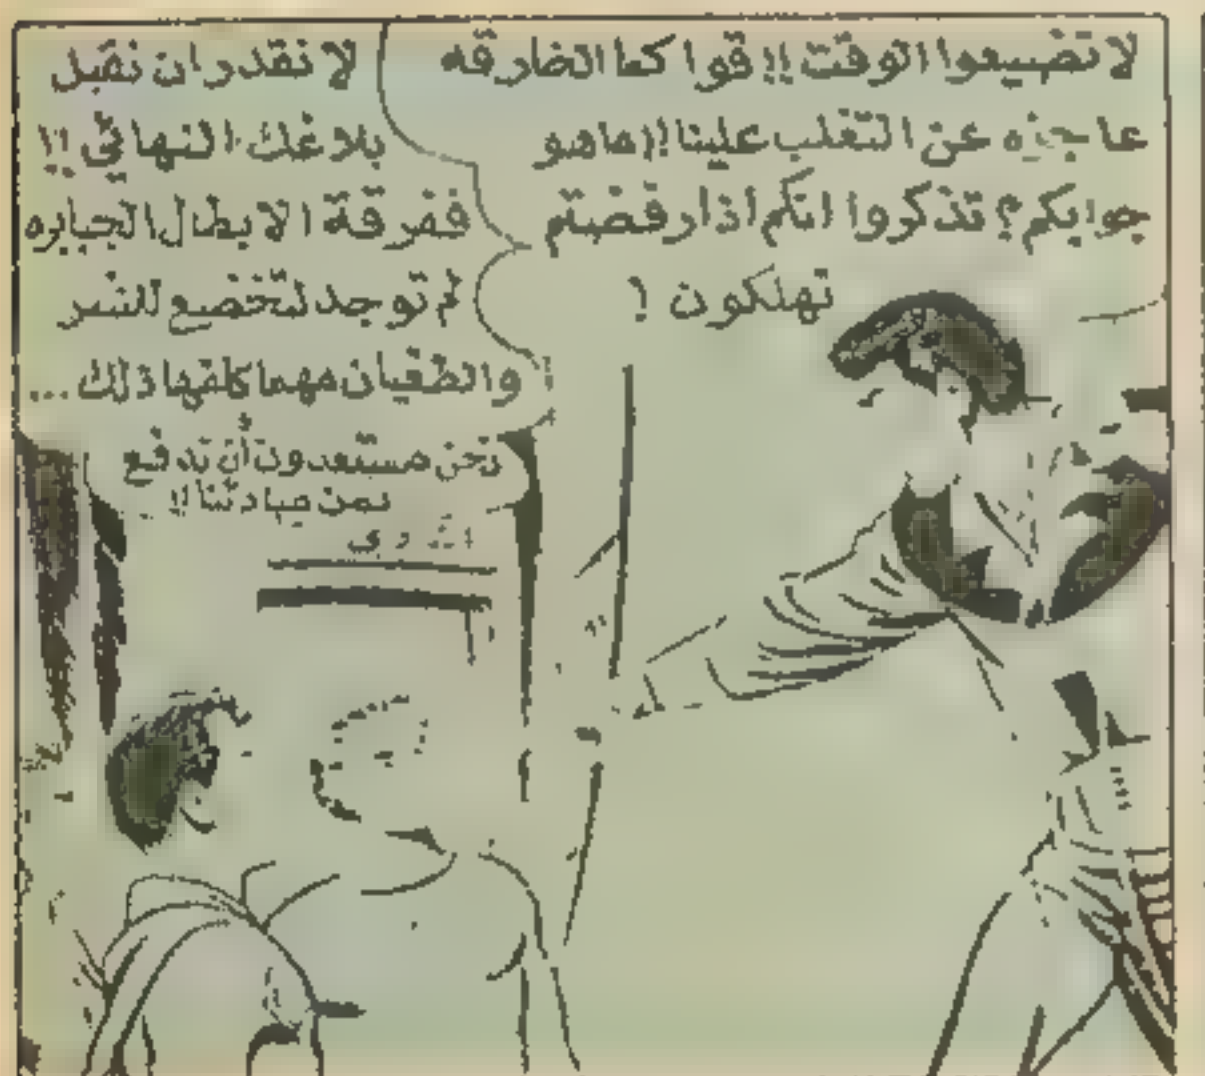 لا تضيعوا الوقت !! قواكما الخارقه
عاجزه عن التغلب علينا !! ماهو
جوابكم ؟ تذكروا انكم اذا رفضتم
تهلكون !
لا نقدر ان نقبل
بلاغك النهائي !!
ففرقة الابطال الجبابره
لم توجد لتخضع للشر
والطغيان مهما كلفها ذلك ...
نحن مستعدون أن ندفع
ثمن مبادئنا !!